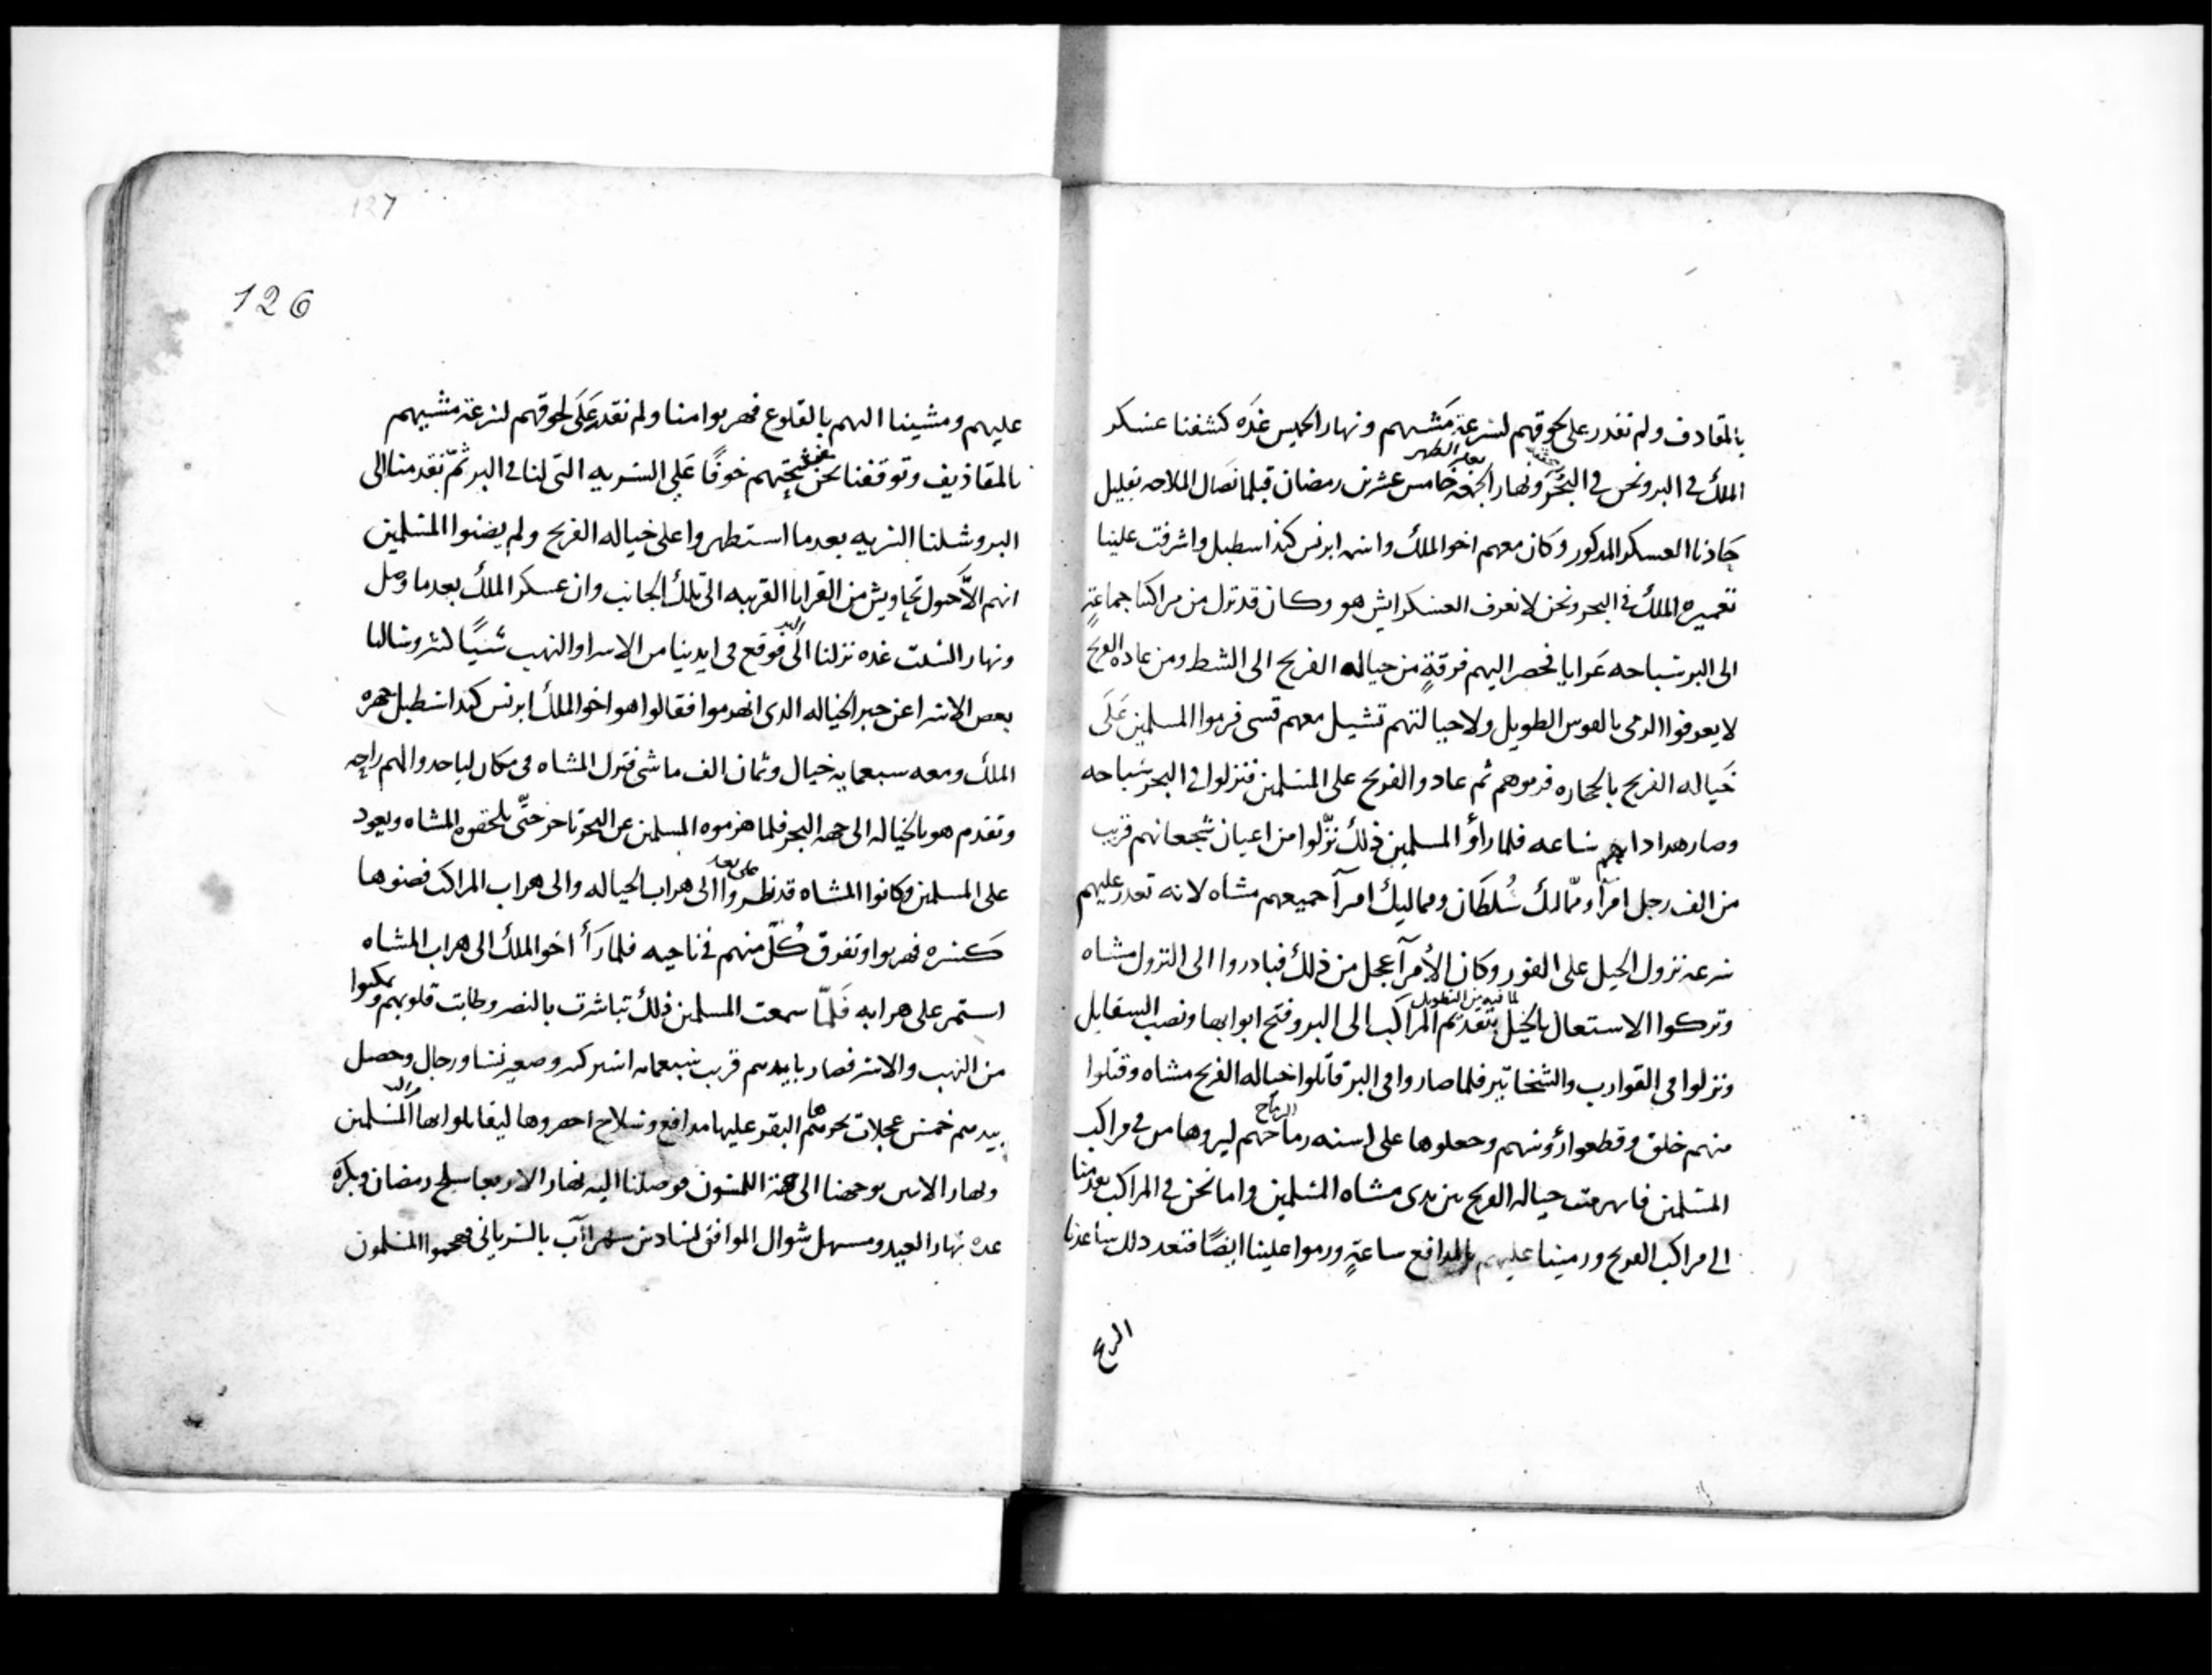 بالمقادف ولم نقدر على لحوقهم لسرعة مشيهم ونهار الخميس غده كشفنا عسكر
بعد الظهر
الملك في البر ونحن في البحر ونهار الجمعة خامس عشرين رمضان قبلما نصال الملاحه بقليل
جاذنا العسكر المدكور وكان معهم اخو الملك واسمه ابرنس كند اسطبل واشرفت علينا
تعميرة الملك في البحر ونحن لا نعرف العسكر ايش هو وكان قد نزل من مراكبنا جماعةٍ
الى البر سباحه عرايا فحصر اليهم فرقةٍ من خياله الفرنج الى الشط ومن عاده الفرنج
لا يعرفوا الرمى بالقوس الطويل ولا خيالتهم تشيل معهم قسى فرموا المسلمين على
خياله الفرنج بالحجاره فردوهم ثم عادوا الفرنج على المسلمين فنزلوا في البحر سباحه
وصار هدا دابهم ساعه فلما رأو المسلمين ذلك نزّلوا من اعيان شجعانهم قريب
من الف رجل امرآ وممّالك سُلطان ومماليك امرآ جميعهم مشاه لانه تعدر عليهم
سرعه نزول الخيل على الفور وكان الأمر آعجل من ذلك فبادروا الى النزول مشاه
لما فيه من التطويل
وتركوا الاستعال بالخيل بتقديم المراكب الى البر وفتح ابوابها ونصب السقايل
ونزلوا في القوارب والشخاتير فلما صاروا في البر قاتلوا خياله الفرنج مشاه وقتلوا
الرماح
منهم خلق وقطعوا رؤسهم وجعلوها على اسنه رماحهم ليروها من في مراكب
المسلمين فانهزمت خياله الفرنج من يدى مشاه المسلمين واما نحن في المراكب بعد منا
الى مراكب الفرنج ورمينا عليهم بالمدافع ساعةٍ ورموا علينا ايضًا فبعد دلك ساعدنا
الريح
127
126
عليهم ومشينا اليهم بالقلوع فهربوا منا ولم نقدر على لحوقهم لسرعة مشيهم
بالمقاذيف وتوقفنا نحن عن تبعهم خوفًا على السريه التى لنا في البر ثمّ تقدمنا الى
البر وشلنا السريه بعدما استظهروا على خياله الفرنج ولم يضنوا المسلمين
انهم الاَّ حول تجاويش من القرايا القريبه الى تلك الجانب وان عسكر الملك بعد ما وصل
ونهار السبت غده نزلنا الى البر فوقع في ايدينا من الاسرا والنهب شيًا كثر وسالنا
بعض الاسرا عن خبر الخياله الدى انهدموا فقالوا هو اخو الملك ابرنس كند اسطبل جهزه
الملك ومعه سبعمايه خيال وثمان الف ماشى فنزل المشاه في مكان لياخدوا لهم راحه
وتقدم هو بالخياله الى جهه البحر فلما هزموه المسلمين عن البحر تاخر حتّى يلحقوه المشاه ويعود
على بعد
على المسلمين وكانوا المشاه قد نظروا الى هراب الخياله والى هراب المراكب فضنوها
كسره فهربوا وتفرق كُلّ منهم في ناحيه فلما رأَ اخو الملك الى هراب المشاه
استمر على هرابه فَلمّا سمعت المسلمين ذلك تباشرت بالنصر وطابت قلوبهم وتمكنوا
من النهب والاسر فصار بايديهم قريب سبعمايه اسير كبير وصغير نسا ورجال وحصل
بيدهم خمس عجلات تجرها البقر عليها مدافع وسلاح احضروها ليقابلوا بها المسلمين
ونهار الاحد توجهنا الى جهة اللمسون فوصلنا اليه نهار الاربعا سلخ رمضان وبكره
غده نهار العيد ومستهل شوال الموافق لسادس شهر اآب بالسرياني هجموا المسلمون